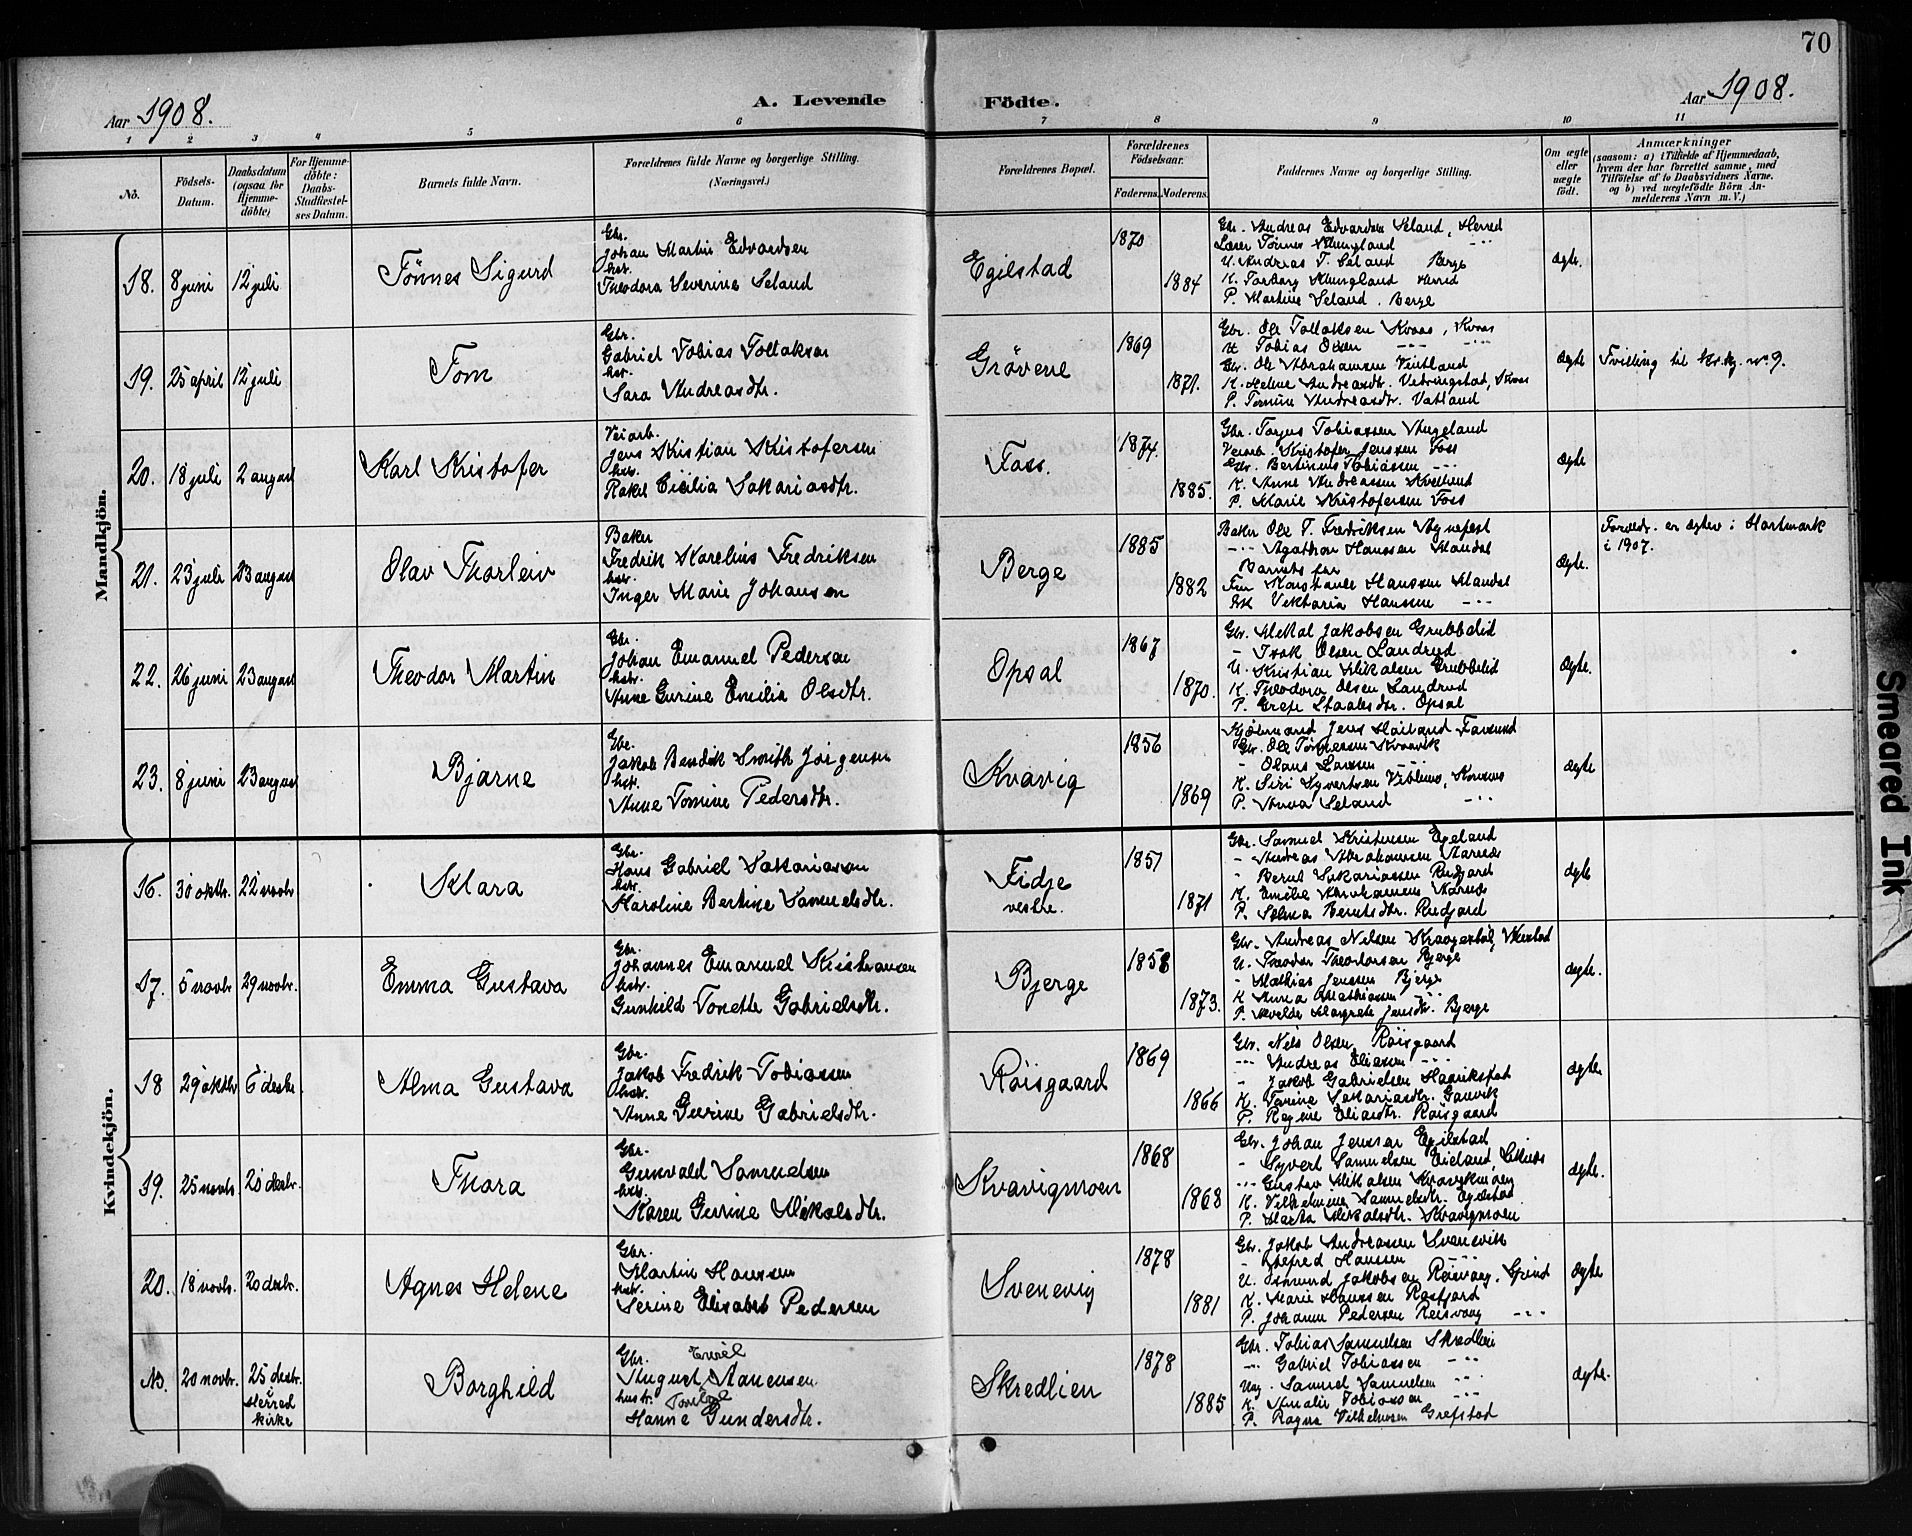 70
Aar 1908.
A. Levende
Födte.
Aar 1908.
1 2 3 4 5 6 7 8 9 10 11
No.
Födsels-
Datum.
Daabsdatum
(ogsaa for
Hjemme-
döbte)
For Hjemme-
döbte:
Daabs-
Stadfæstel-
ses Datum.
Barnets fulde Navn.
Forældrenes fulde Navne og borgerlige Stilling.
(Næringsvei.)
Forældrenes Bopæl.
Forældrenes
Födselsaar.
Faderens. Moderens.
Faddernes Navne og borgerlige Stilling.
Om ægte
eller
uægte
födt.
Anmærkninger
(saasom: a) i Tilfælde af Hjemmedaab,
hvem der har forrettet samme, med
Tilföielse af to Daabsvidners Navne.
og b) ved uægtefödte Börn An-
melderens Navn m. V.)
Mandkjön.
18. 8 juni 12 juli
Tönnes Sigurd
Gbr.
Johan Martin Edvardsen
hst.
Theodora Severine Seland
Egilstad
1870
1884
Gbr. Andreas Edvardsen Seland, Herred
Lærer Tönnes Klungland -"-
U. Andreas T. Seland Berge
K. Torborg Klungland Herred
P. Martine Seland. Berge
ægte.
19. 25 april 12 juli
Tom
Gbr.
Gabriel Tobias Tollaksen
hst.
Sara Andreasdtr.
Grövene
1869
1871.
Gbr. Ole Tollaksen Kvaas, Kvaas
U Tobias Olsen -"- -"-
Gbr. Ole Abrahamsen
K. Helene Andreasdtr.
P. Tomine Andreasdtr. Vatland
ægte
Tvilling til
20. 18 juli 2 august
Karl Kristofer
Veiarb.
Jens Kristian Kristofersen
hst.
Rakel Cicilia Sakariasdtr.
Foss.
1874.
1885.
Gbr. Torjus Tobiassen Augeland
Veiarb. Kristofer Jenssen Foss
Gbr. Bertinius Tobiassen -"-
K. Anne Andreassen
P. Marie Kristofersen Foss
ægte
21. 23 juli 23 august
Olav Thorleiv
Baker
Fredrik Karelius Fredriksen
hst.
Inger Marie Johansen
Berge
1885
1882
Baker Ole T. Fredriksen Agnefest
-"- Agathon Hanssen Mandal
Barnets far
Fru Konstance Hanssen Mandal
Viktoria Hanssen -"-
ægte.
Forældr. er ægtev. i Hartmark
i 1907.
22. 26 juni 23 august
Theodor Martin
Gbr.
Johan Emanuel Pedersen
hstr.
Anne Gurine Emilia Olsdtr.
Opsal
1867
1870.
Gbr. Mikal Jakobsen Grubbelid
- Isak Olsen Landrud
U. Kristian Mikalsen Grubbelid
K. Theodora Olsen Landrud
P. Grete Staalesdtr. Opsal
ægte.
23. 8 juni 23 august
Bjarne
Gbr.
Jakob Bendik Smith Jörgensen
hst.
Anne Tomine Pedersdtr.
Kvavig
1856
1869
Kjöbmand Jens Hailand Farsund
Gbr. Ole Tönnessen Kvavik
- Olaus Larssen -"-
K. Siri Syvertsen
P. Anna Seland -"-
ægte
Kvindekjön.
16. 30 oktbr. 22 novbr
Klara
Gbr.
Hans Gabriel Sakariassen
hst.
Karoline Bertine Samuelsdtr.
Fidje
veslee.
1851
1871
Gbr. Samuel Kristensen Egeland
- Andreas Abrahamsen
- Bernt Sakariassen Rudjord
K. Emelie Abrahamsen
P. Selma Berntsdtr. Rudjord
ægte
17. 5 novbr 29 novbr.
Emma Gustava
Gbr.
Johannes Emanuel Kristiansen
hstr.
Gunhild Tonette Gabrielsdtr.
Bjerge
1858
1873.
Gbr. Andreas Nilsen
U. Theodor Theodorsen Bjerge
- Mathias Jenssen Bjerge
K Anna Mathiassen -"-
P. Margrete Jensdtr. Bjerge
ægte.
18 29 oktbr 6 desbr
Alma Gustava
Gbr.
Jakob Fredrik Tobiassen
hstr.
Anne Gurine Gabrielsdtr.
Röisgaard
1869
1866
Gbr. Nils Olsen Röisgaard
-"- Andreas Eliassen -"-
- Jakob Gabrielsen
K. Tomine Sakariasdtr.
P. Regine Eliasdtr. Röisgaard
ægte
19. 25 novbr. 20 desbr.
Thora
Gbr.
Gunvald Samuelsen
hst.
Karen Gurine Mikalsdtr.
Kvavigmoen
1868
1868
Gbr. Johan Jenssen Egilstad
- Syvert Samuelsen Eieland,
-"- Gustav Mikalsen Kvavigmoen
K. Vilhelmine Samuelsdtr. Egilstad
P. Marta Mikalsdtr. Kvavigmoen
ægte.
20. 18 novbr. 20 desbr.
Agnes Helene
Gbr.
Martin Hanssen
hstr.
Serine Elisabet Pedersen
Svenevig
1878
1881
Gbr. Jakob Andreassen Svenevik
- Hanssen -"-
U. Jakobsen Röisvaag, Spind
K. Marie Hanssen Rosfjord
P. Johanne Pedersen Reisvaag -"-
ægte
No. 20 novbr. 25 desbr.
Herred
kirke
Borghild
Gbr. Emil
August Aanensen
hustr. Tomine
Hanne Gundersdtr.
Skredlien
1878
1885
Gbr. Tobias Samuelsen Skredlien
-"- Gabriel Tobiassen -"-
Ung. Samuel Samuelsen -"-
K. Amalie Tobiassen -"-
P. Ragna Vilhelmsen Grefstad
ægte.
Smeared Ink